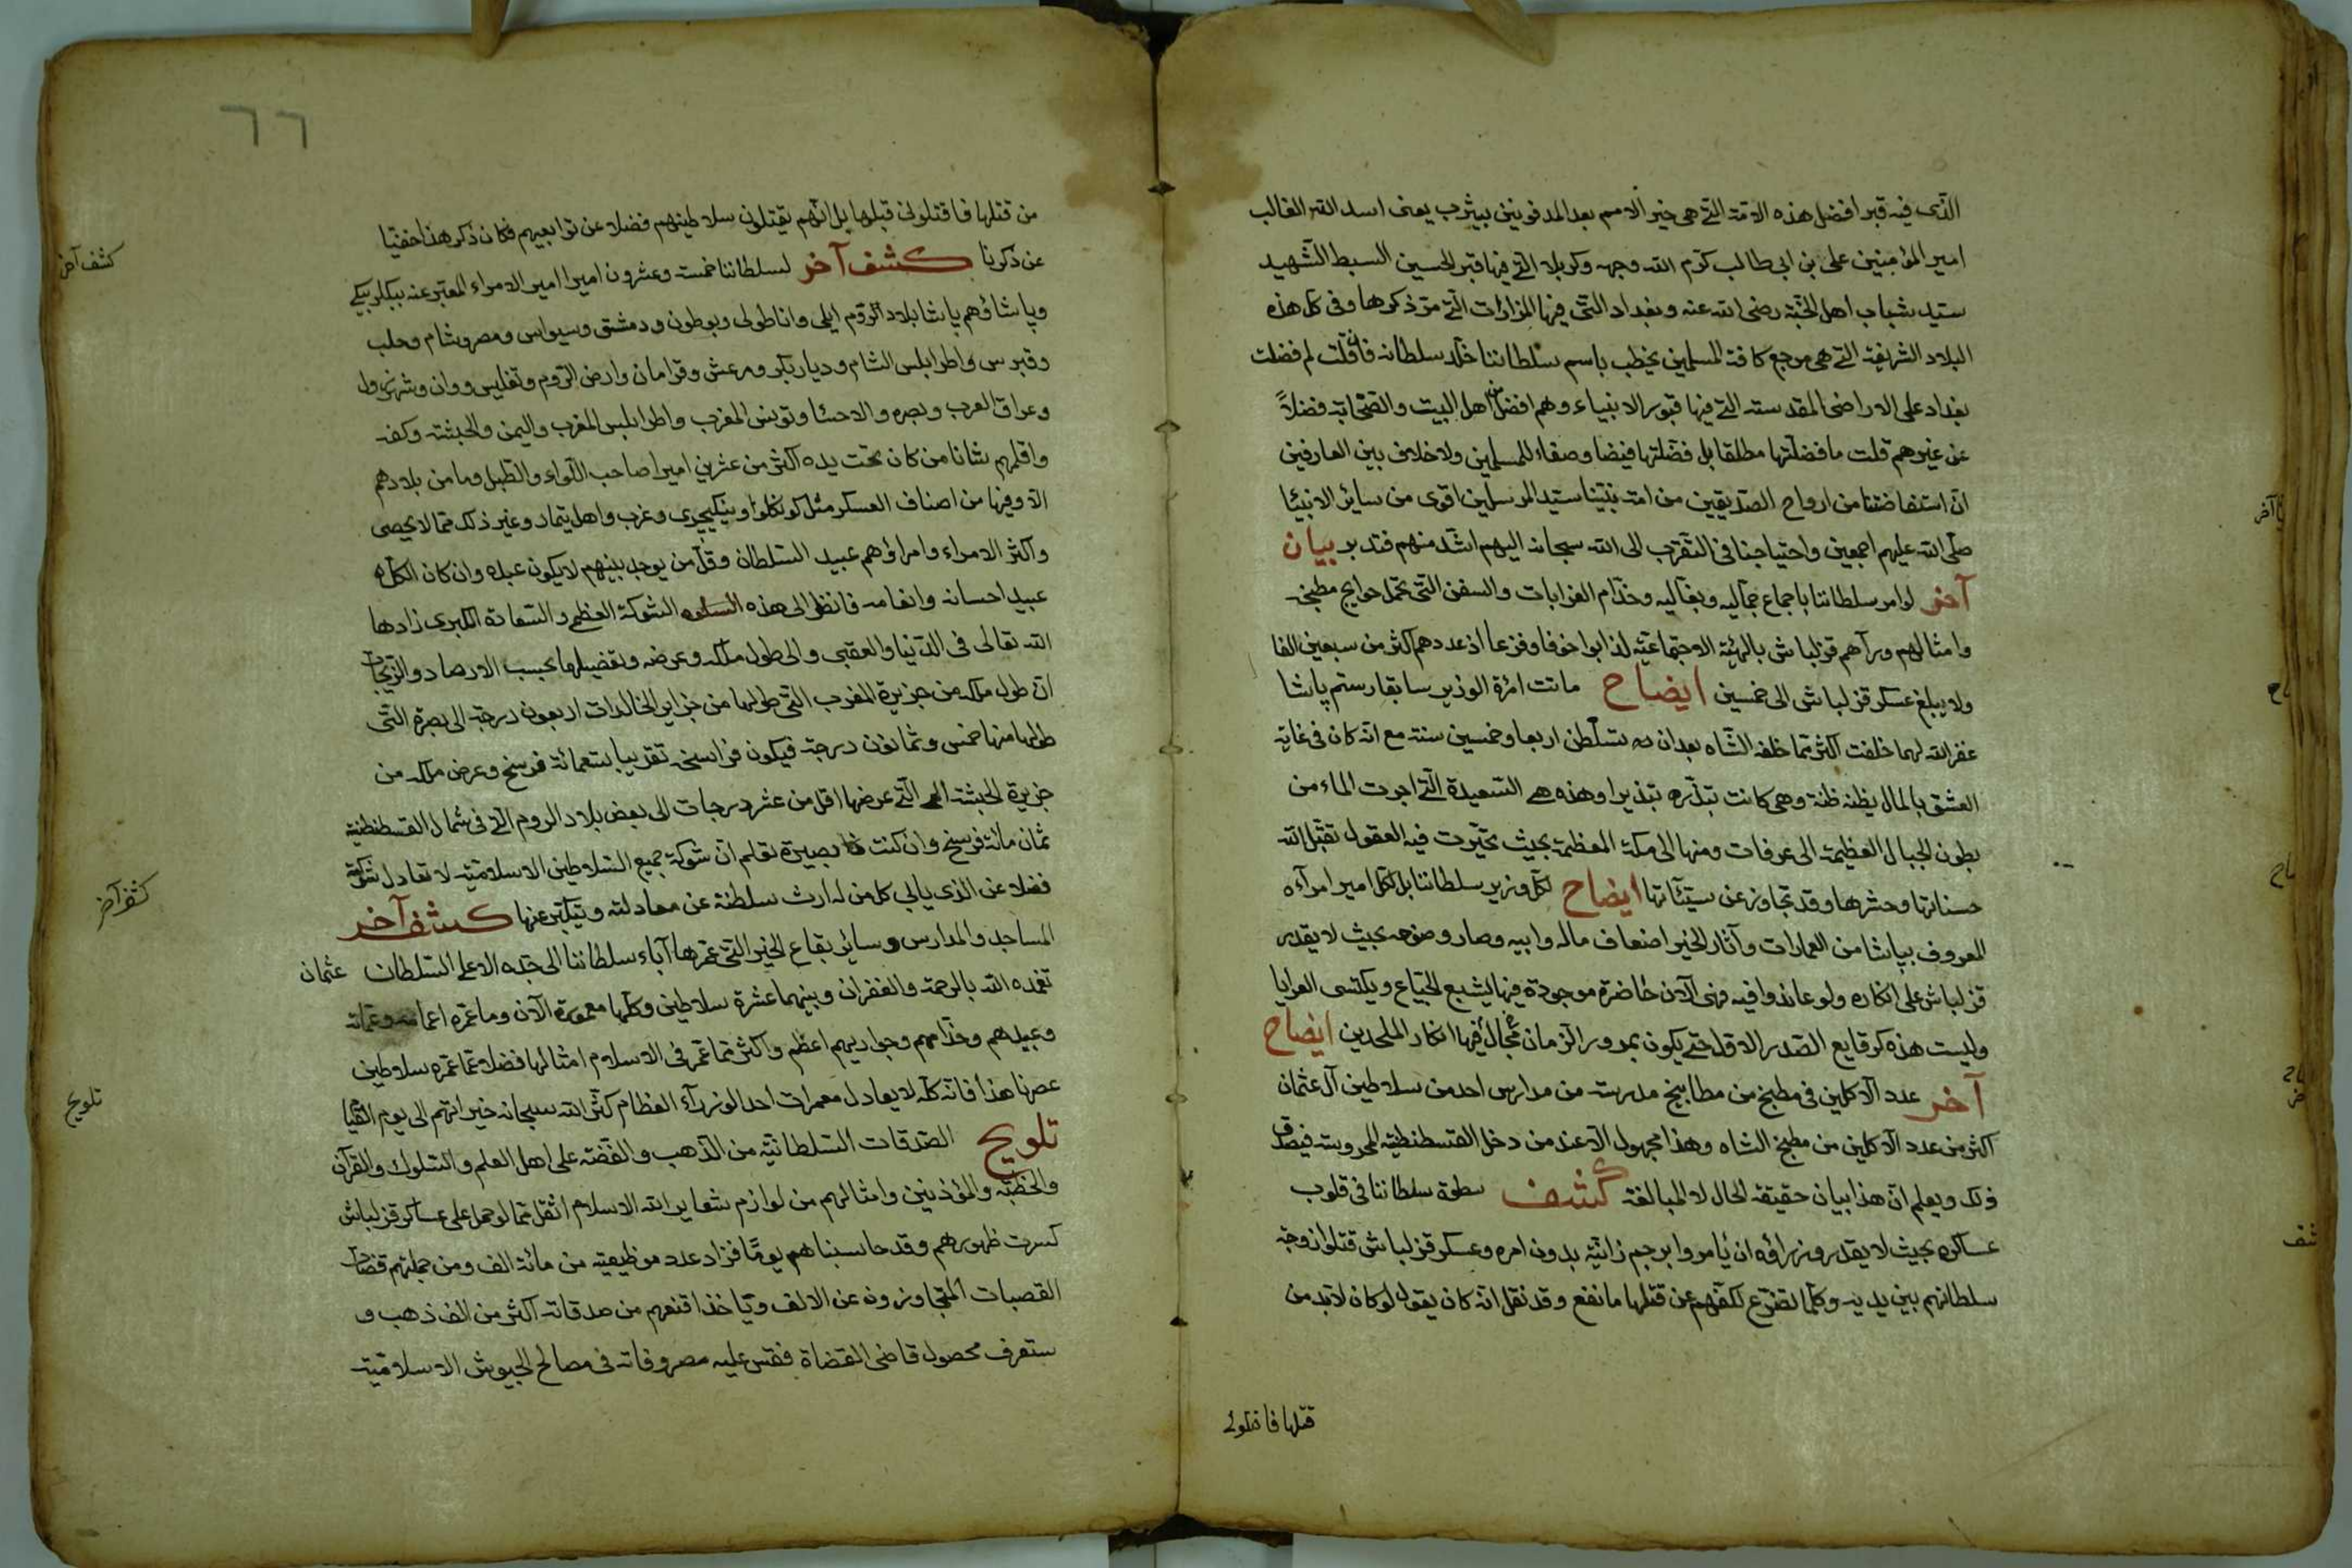 الذى فيه قبر افضل هذه الامة التى هى خير الامم بعد المدفونين بيثرب يعنى اسد الله الغالب
امير المؤمنين على بن ابى طالب كرّم الله وجهه وكربلا التى فيها قبر الحسين السبط الشهيد
سيّد شباب اهل الجنّة رضى الله عنه وبغداد التى فيها المزارات التى مرّ ذكرها وفى كل هذه
البلاد الشريفة التى هى مرجع كافة المسلمين يخطب باسم سلطاننا خلّد سلطانه فان قلت لم فضلت
بغداد على الاراضى المقدسة التى فيها قبور الانبياء وهم افضل من اهل البيت والصّحابة فضلاً
عن غيرهم قلت ما فضلتها مطلقا بل فضلتها فيضا وصفاء للمسلمين ولا خلاف بين العارفين
انّ استفاضتنا من ارواح الصدّيقين من امة نبيّنا سيّد المرسلين اقوى من ساير الانبيا
صلى الله عليهم اجمعين واحتياجنا فى التقرب الى الله سبحانه اليهم اشدّ منهم فتدبر بيان
آخر لو امر سلطاننا باجماع جمّاليه وبغّاليه وخدّام الغرابات والسفن التى تحمل حوايج مطبخه
وامثالهم ورآهم قزلباش بالهيئة الاجتماعيّة لذابوا خوفا وفزعا اذ عددهم اكثر من سبعين الفا
ولا يبلغ عسكر قزلباش الى خمسين ايضاح ماتت امرة الوزير سابقا رستم پاشا
غفر الله لهما خلفت اكثر ممّا خلفه الشاه بعد ان تسلّطن اربعا وخمسين سنة مع انه كان فى غاية
العشق بالمال يظنه ظنة وهى كانت تبذّره تبذيرا وهذه هى السّعيدة التى اجرت الماء من
بطون الجبال العظيمة الى عرفات ومنها الى مكة المعظمة بحيث تحيّرت فيه العقول تقبّل الله
حسناتها وحشرها وقد تجاوز عن سيّئاتها ايضاح لكلّ وزير سلطاننا بل لكلّ امير امرآءه
المعروف بپاشا من العمارات وآثار الخير اضعاف ماله وابيه وصار وضوحه بحيث لا يقدر
قزلباش على انكاره ولو عاندوا فيه فهى الآن حاضرة موجودة فيها يشبع الجياع ويكتسى العرايا
وليست هذه كوقايع الصّدر الاول حتى يكون بمدور الزمان مجال فيها انكار الملحدين ايضاح
آخر عدد الآكلين فى مطبخ من مطابخ مدرسة من مدارس احد من سلاطين آل عثمان
اكثر من عدد الاكلين من مطبخ الشاه وهذا مجهول الّا عند من دخل القسطنطنيّة المحروسة فيصدّق
ذلك ويعلم انّ هذا بيان حقيقة الحال لا المبالغة كشف سطوة سلطاننا فى قلوب
عساكره بحيث لا يقدر وزراؤه ان يأمروا برجم زانيّة بدون امره وعسكر قزلباش قتلوا زوجة
سلطانهم بين يديه وكلّما تضرّع لكفّهم عن قتلها ما نفع وقد نقل انّه كان يقول لو كان لا بد من
قتلها فاقتلونى
٦٦
من قتلها فاقتلونى قبلها بل انّهم يقتلون سلاطينهم فضلا عن توابعيهم فكان ذكر هذا حفنيّا
عن ذكرنا كشف آخر لسلطاننا خمسة وعشرون اميرا امير الامراء المعتبر عنه ببكلربيكى
وپاشاؤهم پاشا بلاد الرّوم ايلى واناطولى وبوطون ودمشق وسيواس ومصر وشام وحلب
وقبرس واطرابلس الشام وديار بكر ومرعش وقرامان وارض الرّوم وتفليس ووان وشهرزول
وعراق العرب وبصره والاحسا وتونس المغرب واطرابلس المغرب واليمن والحبشة وكفه
واقلهم شانا من كان تحت يده اكثر من عشرين اميرا صاحب اللّواء والطّبل وما من بلادهم
الّا وفيها من اصناف العسكر مثل كونكلو وينكيچرى وعزب واهل تيمار وغير ذلك ممّا لا يحصى
واكثر الامراء وامراؤهم عبيد السّلطان وقلّ من يوجد بينهم لا يكون عبده وان كان الكلّ
عبيد احسانه وانعامه فانظر الى هذه الشوكة العظمى والسّعادة الكبرى زادها
الله تعالى فى الدّنيا والعقبى والى طول ملكه وعرضه وتفضيلها بحسب الارصاد والزّيجات
انّ طول ملكه من جزيرة المغرب التى طولها من جزاير الخالدات اربعون درجة الى بصرة التى
طولها منها خمس وثمانون درجة فيكون فراسخه تقريبا تسعمائة فرسخ وعرض ملكه من
جزيرة الحبشة التى عرضها اقل من عشر درجات الى بعض بلاد الروم التى فى شمال القسطنطنية
ثمان مائة فرسخ وان كنت ذا بصيرة تعلم انّ شوكة جميع السّلاطين الاسلاميّة لا تعادل شوكته
فضلا عن الذى يابى كل من له ارث سلطنة عن معادلته ويتكبّر عنها كشف آخر
المساجد والمدارس وساير بقاع الخير التى عمّرها آباء سلطاننا الى جدّه الاعلى السّلطان عثمان
تغمده الله بالرحمة والغفران وبينهما عشرة سلاطين وكلّها معمورة الآن وما عمّره اعمامه وعمّاته
وعبيدهم وخدّامهم وجواريهم اعظم واكثر ممّا عمّر فى الاسلام امثالها فضلا عمّا عمّره سلاطين
عصرنا هذا فانّه كلّه لا يعادل معمرات احد الوزرآء العظام كثّر الله سبحانه خيراتهم الى يوم القيا
تلويح الصّدقات السّلطانيّة من الذّهب والفضّة على اهل العلم والسّلوك والقرآن
والخطبة والمؤذنين وامثالهم من لوازم شعاير الله الاسلام اثقل ممّا لو حمل على عساكر قزلباش
كسرت ظهورهم وقد حاسبناهم يومًا فزاد عدد موظيفيه من مائة الف ومن جملتهم قضاة
القصبات المتجاوزون عن الالف ويأخذ اقنعهم من صدقاته اكثر من الف ذهب و
ستعرف محصول قاضى القضاة فقس عليه مصروفاته فى مصالح الجيوش الاسلاميّة
كشف آخر
كشف آخر
تلويح